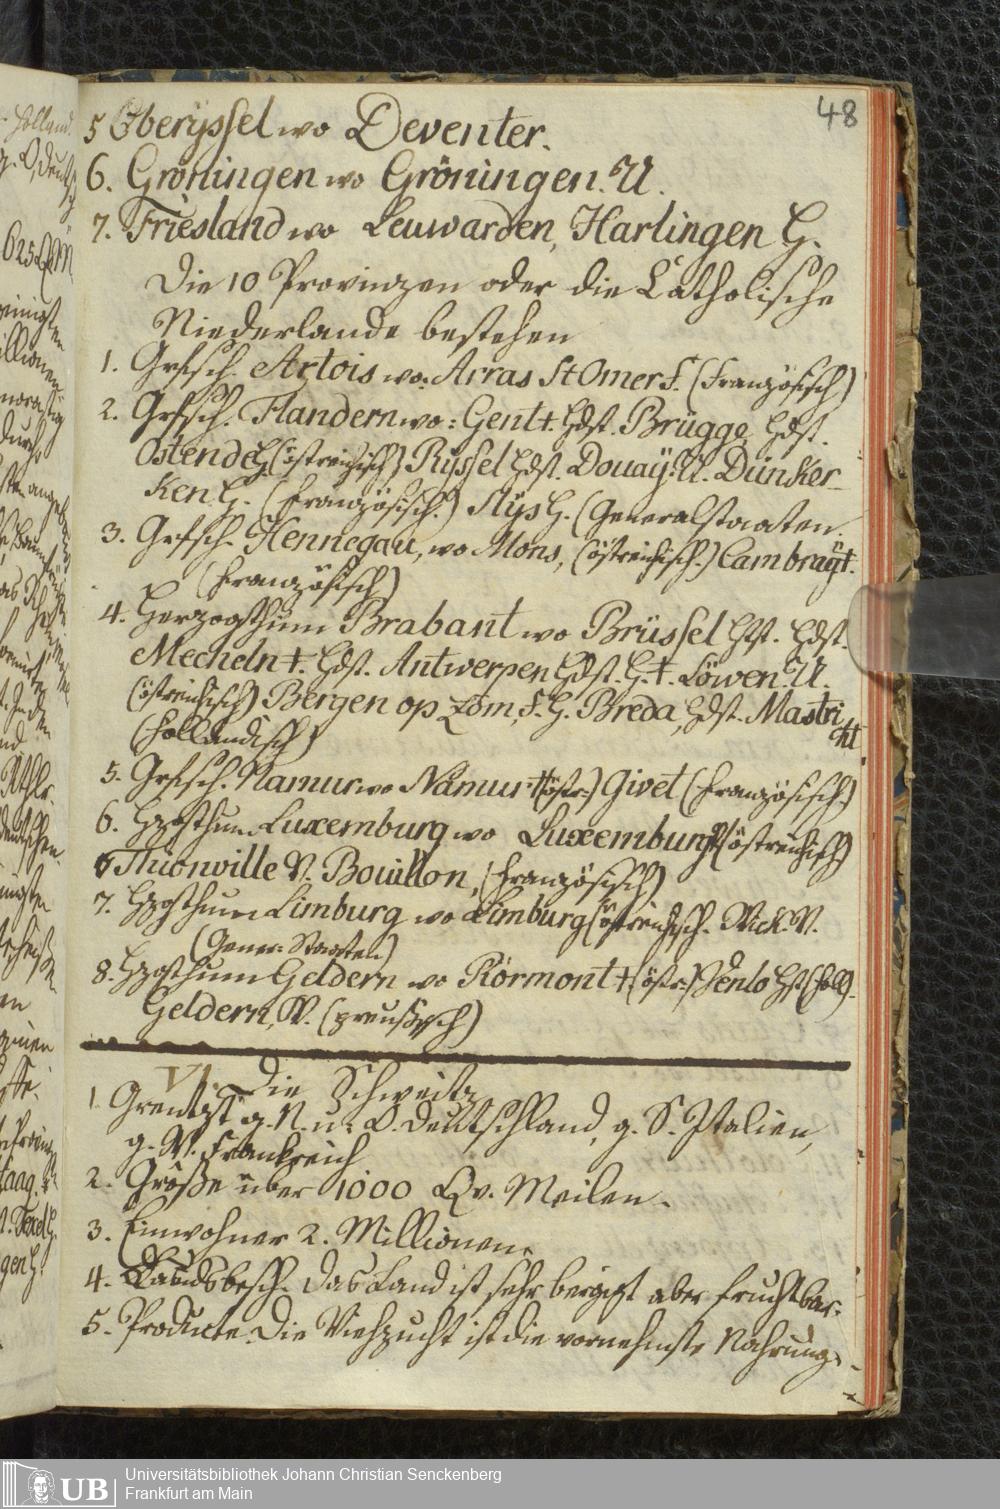 48
5 Oberyssel wo Deventer.
6. Gröningen wo Gröningen. U.
7. Friesland wo Leuwarden, Harlingen H.
Die 10 Provinzen oder die Catholische
Niederlande bestehen
1. Grfsch. Artois wo: Arras St Omer F. (französisch)
2. Grfsch. Flandern wo: Gent †. Hdst. Brügge Hdst.
Ostende H. (östreichisch) Ryssel Hdst. Douay. U. Dünker-
ken H. (französisch.) Slys H. (Generalstaaten.
3. Grfsch. Hennegau, wo Mons, (östreichisch.) Cambray †.
(französisch)
4. Herzogthum Brabant wo Brüssel Hst. Hdst.
Mecheln †. Hdst. Antwerpen Hdst. H. †. Löwen. U.
(östreichisch) Bergen op Zom, F. H. Breda, Hdst. Mastri
cht
(holländisch)
5. Grfsch. Namur wo Namur † (östr.) Givet (französisch.)
6. Hzogthum Luxemburg wo Luxemburg (östreichisch)
Thionville V. Bouillon, (französisch)
7. Hzogthum Limburg wo Limburg (östreichisch. Wick. V.
(Gener: Staaten)
8. Hzogthum Geldern wo Rörmont † (östr.) Venlo Hst (holl).
Geldern, V. (preußisch)
VI. Die Schweitz
1. Grentzt g. N. u. O. Deutschland, g. S. Italien,
g. W. Frankreich
2. Größe über 1000 Qv. Meilen.
3. Einwohner 2. Millionen.
4. Landsbesch. Das Land ist sehr bergigt aber fruchtbar.
5. Producte. Die Viehzucht ist die vornehmste Nahrung.
UB
Universitätsbibliothek Johann Christian Senckenberg
Frankfurt am Main